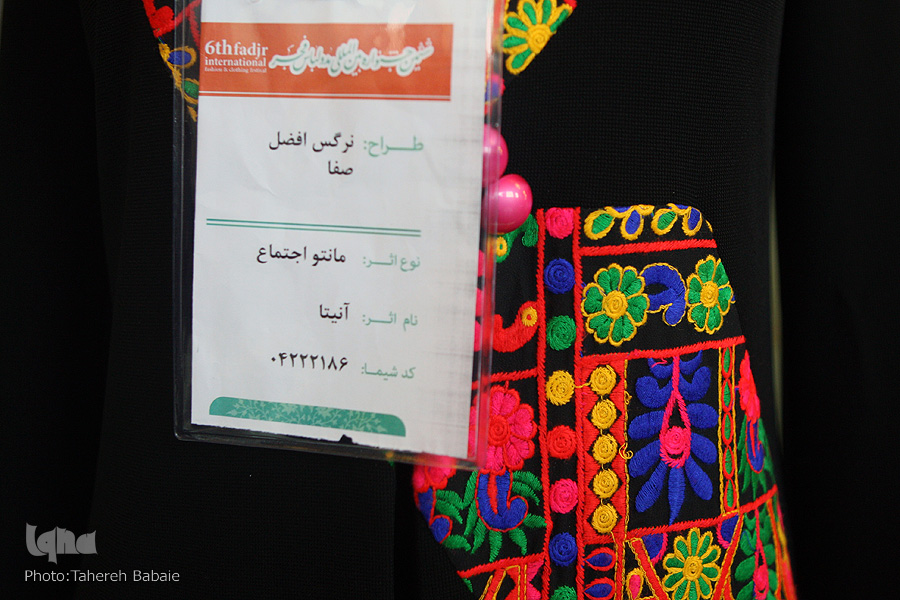 6th fadjr
international
fashion & clothing festival
ششمین جشنواره بین المللی مد و لباس فجر
طراح: نرگس افضل
صفا
نوع اثر: مانتو اجتماع
نام اثر: آنیتا
کد شیما: ۰۴۲۲۲۱۸۶
Iqna
Photo:Tahereh Babaie